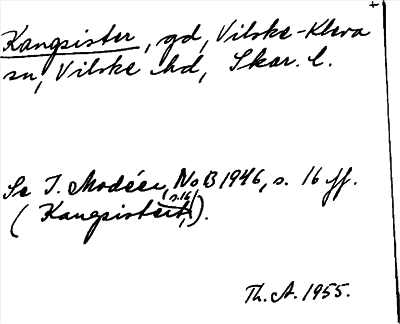 Kangsister, gd, Vilske-Kleva
sn, Vilske hd, Skar. l.
Se I. Modéer, NoB 1946, s. 16 ff.
s. 16
(Kangsistert,).
Th. A. 1955.